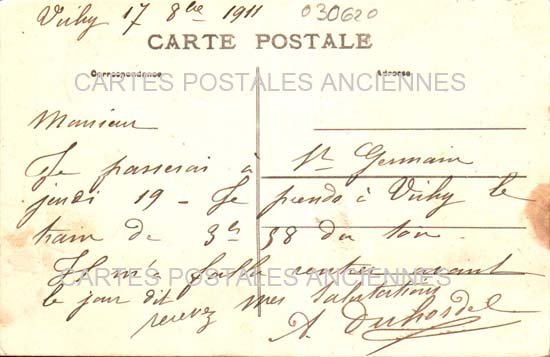 Vichy 17 8bre 1911
030620
CARTE POSTALE
Correspondance
Adresse
CARTES POSTALES ANCIENNES
Monsieur
Je passerai à St Germain
jeudi 19 - Je prends à Vichy le
train de 3h 58 du soir
Il m'a fallu rentrer avant
CARTES POSTALES ANCIENNES
le jour dit
recevez mes salutations
A.